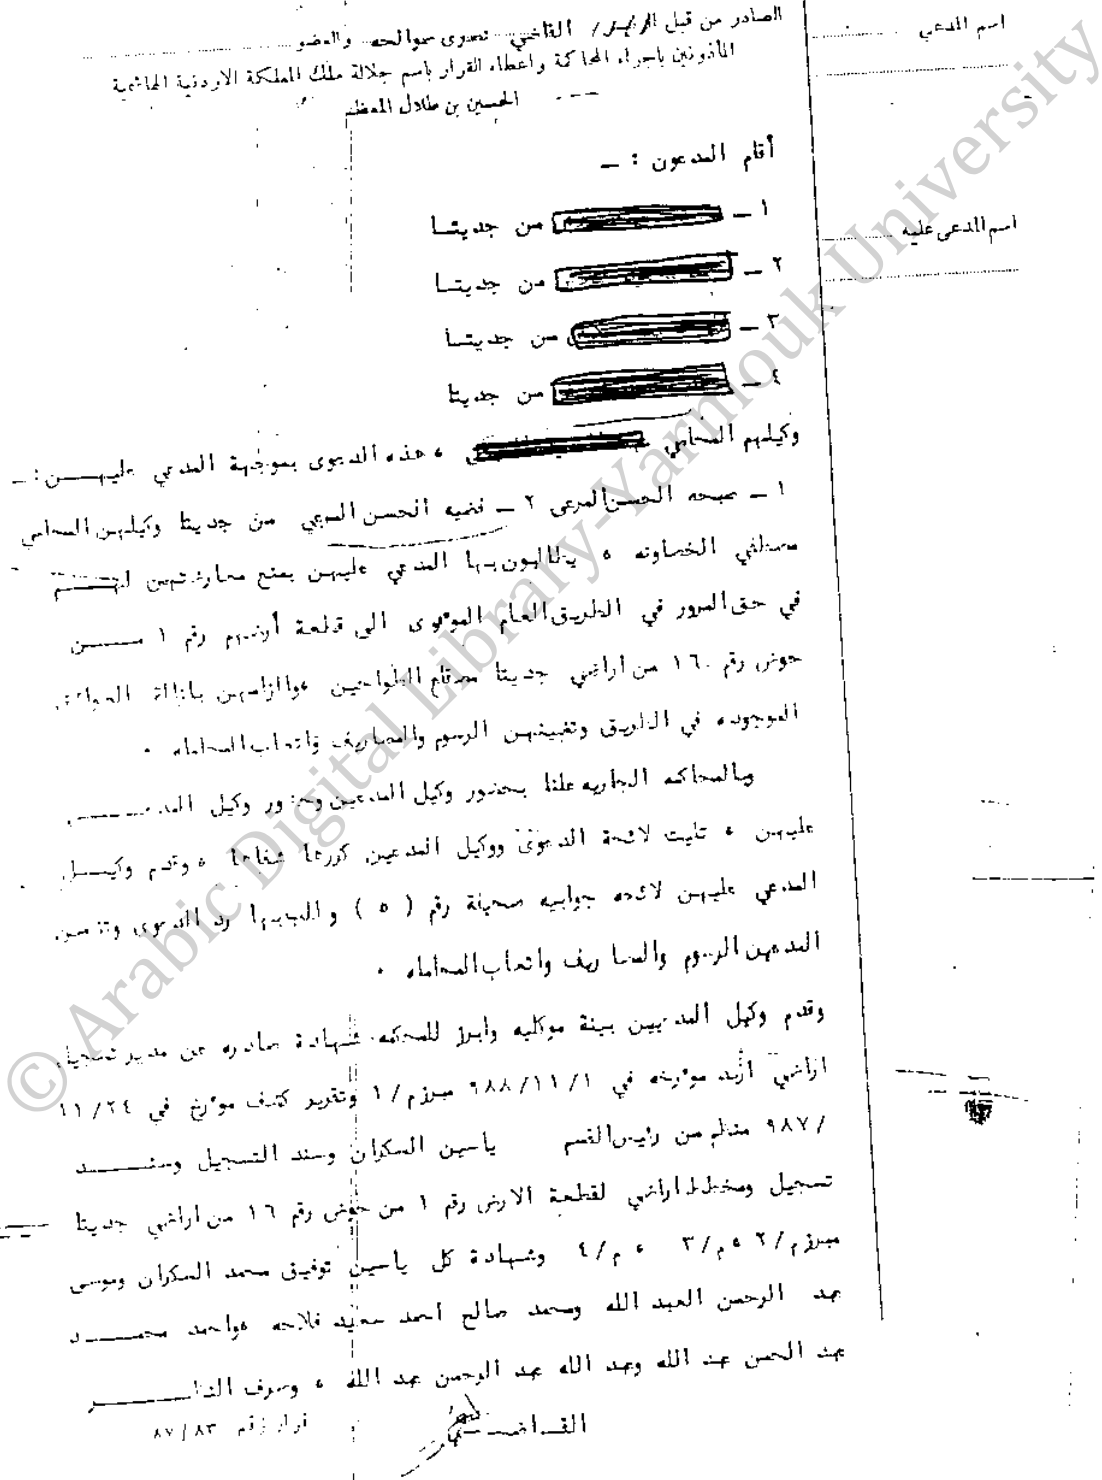 الصادر من قبل القاضي نصرى سوالحه والعضو
المأذونين باجراء المحاكمة واعطاء القرار باسم جلالة ملك المملكة الاردنية الهاشمية
الحسين بن طلال المعظم
اسم المدعي
اسم المدعى عليه
أقام المدعون : ـ
١ ـ من جديتا
٢ ـ من جديتا
٣ ـ من جديتا
٤ ـ من جديتا
وكيلهم المحامي ، هذه الدعوى بمواجهة المدعي عليهن : ـ
١ ـ صبحه الحسن المرعى ٢ ـ فضيه الحسن المرعي من جديتا وكيلهن المحامي
مصطفي الخصاونه ، يطالبون بها المدعي عليهن بمنع معارضتهن لهم
في حق المرور في الطريق العام المؤدى الى قطعة أرضهم رقم ١ من
حوض رقم ١٦٠ من اراضي جديتا الطواحين ، والزامهن بازالة العوائق
الموجوده في الطريق وتضمينهن الرسوم والمصاريف واتعاب المحاماه ٠
وبالمحاكمه الجاريه علنا بحضور وكيل المدعين وحضور وكيل المدعي
عليهن ، تليت لائحة الدعوى ووكيل المدعين كررها شفاها ، وقدم وكيل
المدعي عليهن لائحه جوابيه صحيفة رقم ( ٥ ) والمجيبها رد الدعوى وتضمين
المدعين الرسوم والمصاريف واتعاب المحاماه ٠
وقدم وكيل المدعيين بينة موكليه وابرز للمحكمه شهادة صادره عن مدير تسجيل
اراضي اربد مؤرخه في ١/١١/٩٨٨ مبرز م/١ وتقرير كشف مؤرخ في ١١/٢٤
/٩٨٧ منظم من رئيس القسم ياسين السكران وسند التسجيل وسند
تسجيل ومخطط اراضي لقطعة الارض رقم ١ من حوض رقم ١٦ من اراضي جديتا
مبرز م/٢ ، م/٣ ، م/٤ وشهادة كل ياسين توفيق محمد السكران وموسى
عبد الرحمن العبد الله ومحمد صالح احمد سعيد فلاحه ، واحمد محمد
عبد الحسن عبد الله وعبد الله عبد الرحمن عبد الله ، وصرف النظر
القاضي
قرار رقم ٨٧/٨٣
© Arabic Digital Library-Yarmouk University